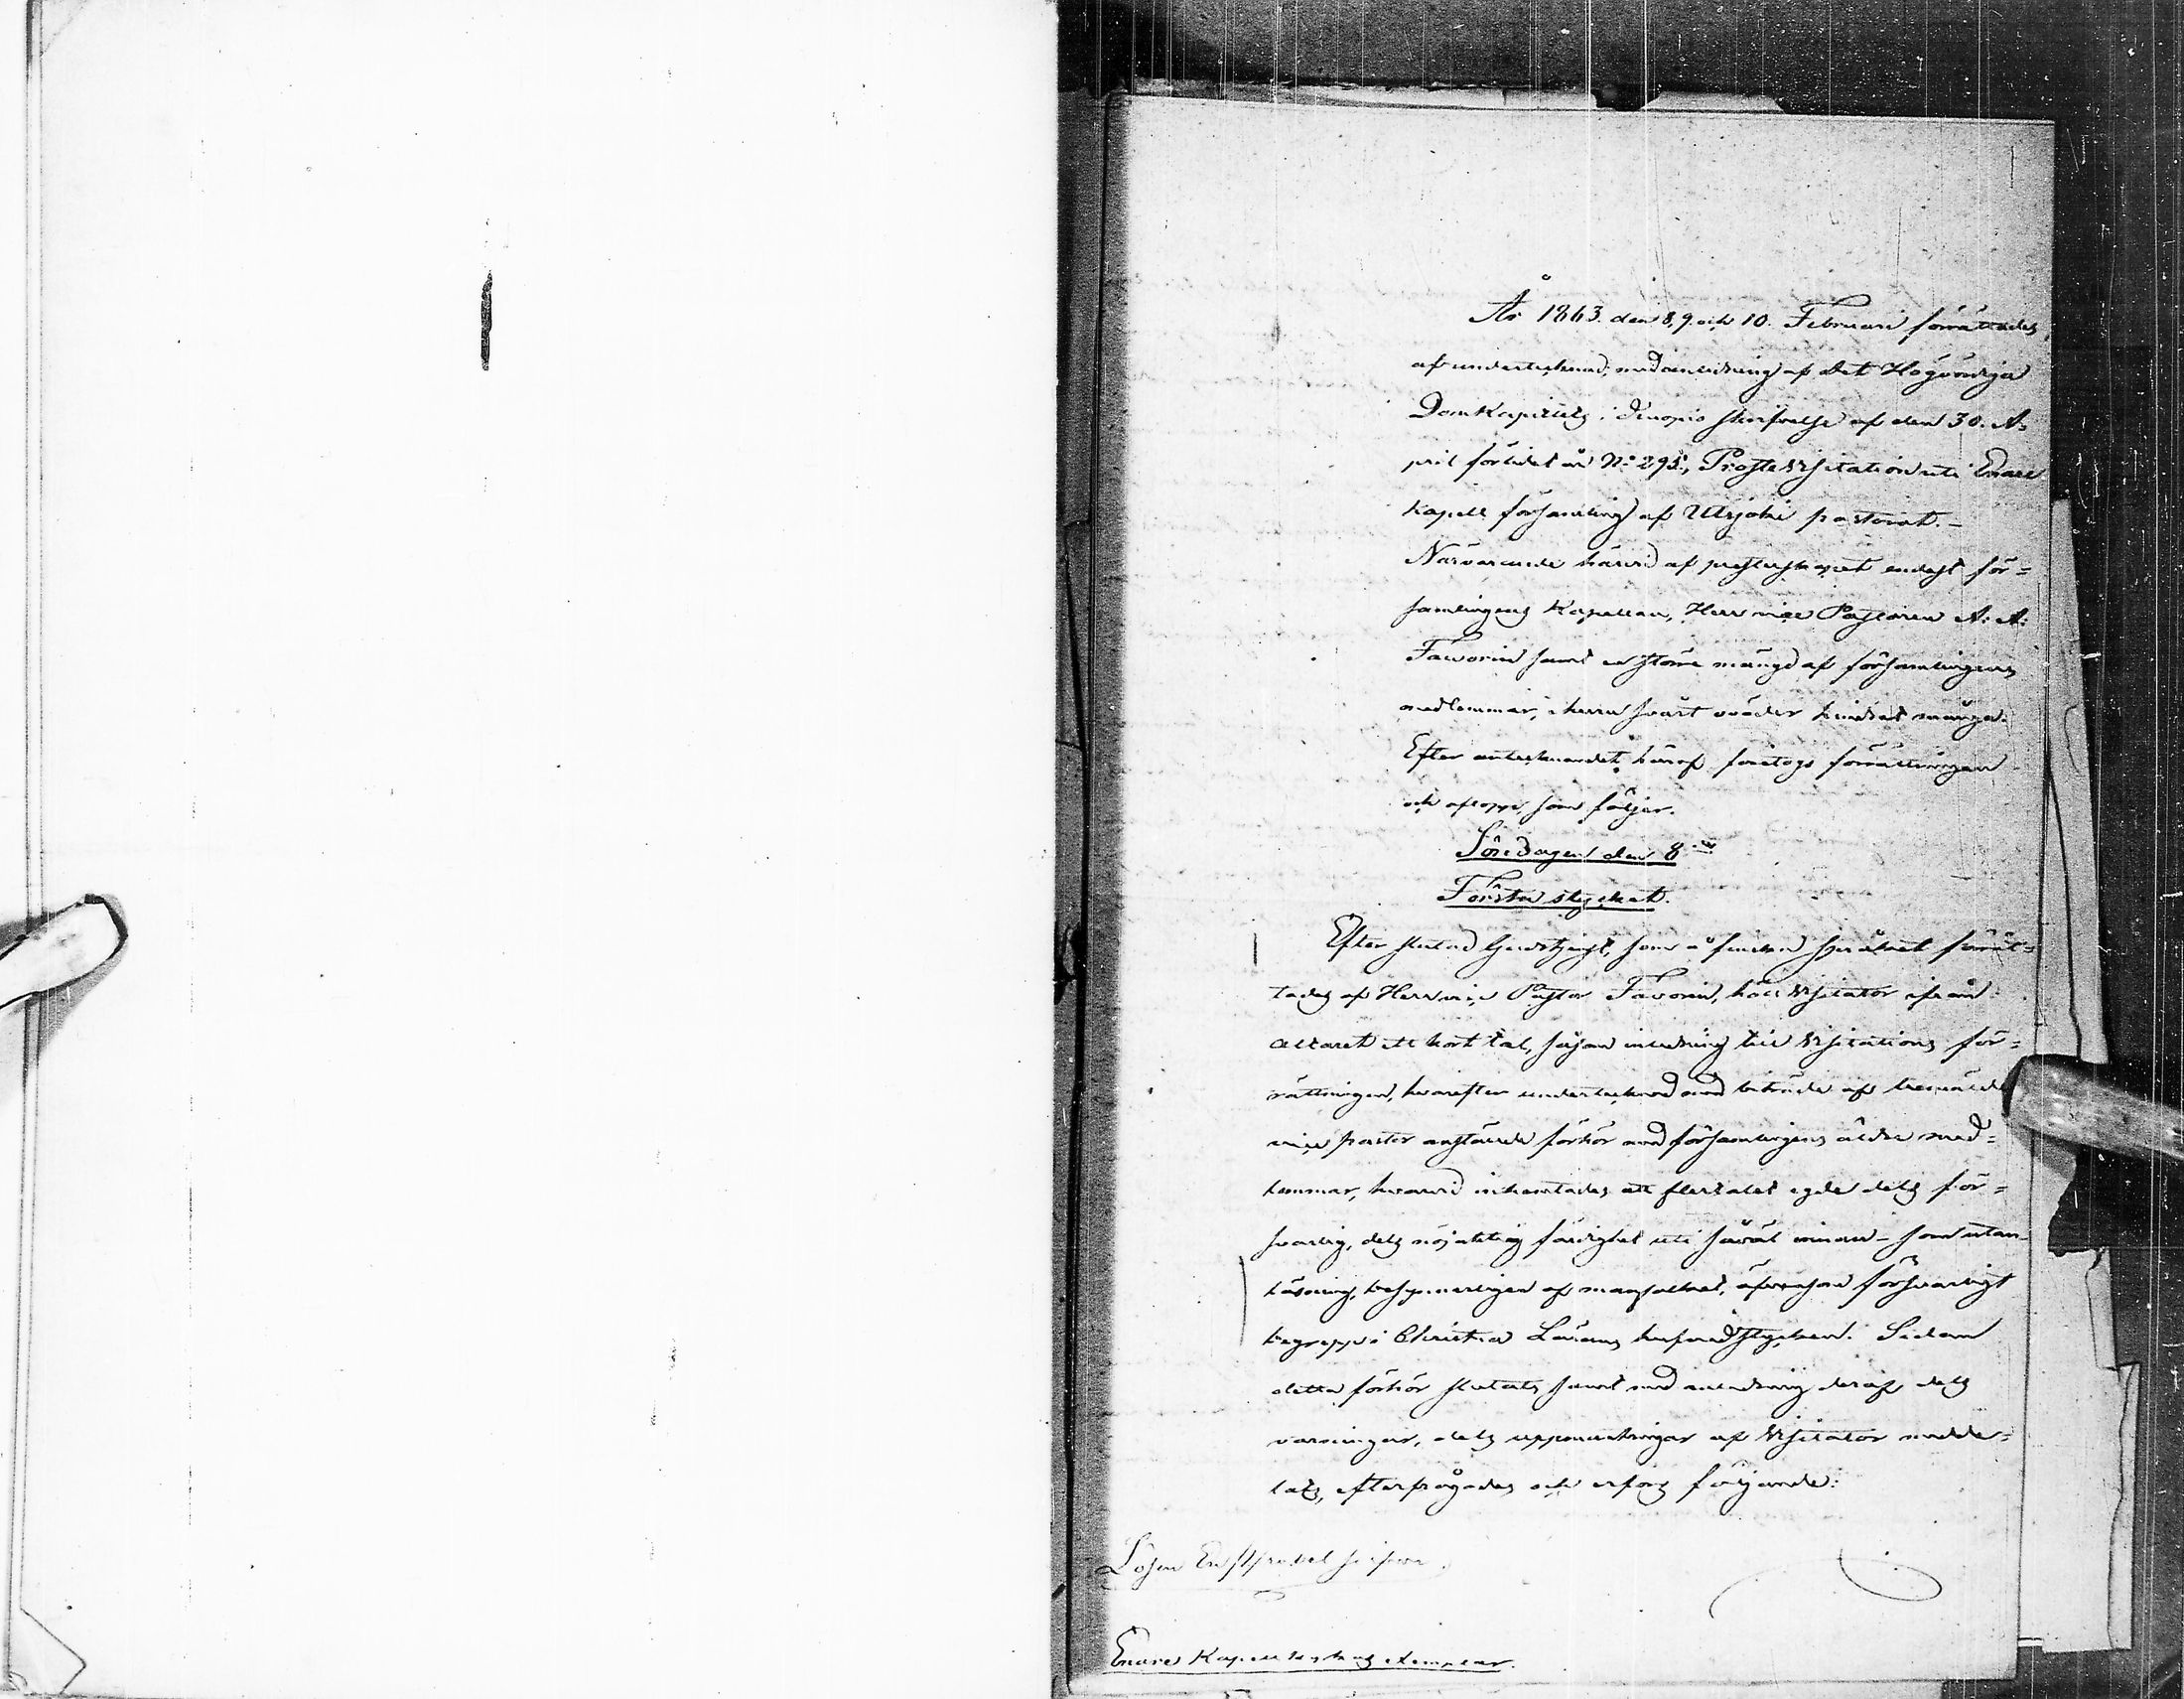 År 1863. den 8, 9. och 10. Februari förrättades,
af undertecknad, med anledning af Det Högvördiga
DomKapitlets i Kuopio skrifvelse af den 30. A=
pril förlidet år No 295, Proste Visitation uti Enare
Kapell församling af Utsjoki pastorat. –
Närvarande härvid af presterskapet endast för=
samlingens Kapellan, Herr vice Pastoren A. A.
Favorin samt en större mängd af församlingens
medlemmar, ehuru svårt wäder hindrat många.
Efter antecknandet häraf företogs förrättningen
och aflopp, som följer.
Söndagen den 8de
Första stycket.
Efter slutad Gudstjenst, som å finska språket förrät=
tades af Herr vice Pastor Favorin, höll Visitator ifrån
altaret ett kort tal, såsom inledning till Visitations för=
rättningen, hvarefter undertecknad med biträde af bemälde
vice pastor anställde förhör med församlingens äldre med=
lemmar, hvarvid inhemtades att flertalet egde dels för=
svarlig, dels nöjaktig färdighet uti såväl innan- som utan-
läsning, besynnerligen af manfolket, äfvensom försvarligt
begrepp i Christna Lärans hufvudstycken. Sedan
detta förhör slutats samt med anledning deraf dels
varningar, dels uppmuntringar af Visitator medde=
lats, efterfrågades och erfors följande:
Lösen
Enare Kapell kyrkas exemplar.